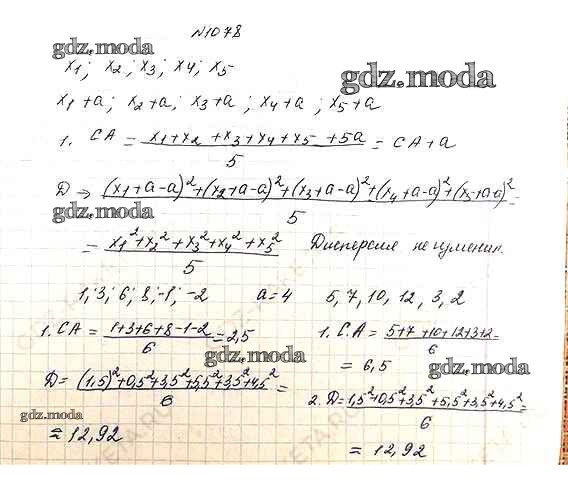 №1078
gdz.moda
x₁; x₂; x₃; x₄; x₅
gdz.moda
x₁+a; x₂+a; x₃+a; x₄+a; x₅+a
1. СА = (x₁+x₂+x₃+x₄+x₅+5a)/5 = СА+a
D → ((x₁+a-a)²+(x₂+a-a)²+(x₃+a-a)²+(x₄+a-a)²+(x₅+a-a)²)/5 =
gdz.moda
= (x₁²+x₂²+x₃²+x₄²+x₅²)/5 Дисперсия не изменил.
1; 3; 6; 8; -1; -2 a=4 5, 7, 10, 12, 3, 2
1. СА = (1+3+6+8-1-2)/6 = 2,5
gdz.moda
D = ((1,5)²+0,5²+3,5²+5,5²+3,5²+4,5²)/6 =
gdz.moda
= 12,92
1. С.А = (5+7+10+12+3+2)/6 =
= 6,5
gdz.moda
2. D = (1,5²+0,5²+3,5²+5,5²+3,5²+4,5²)/6 =
= 12,92